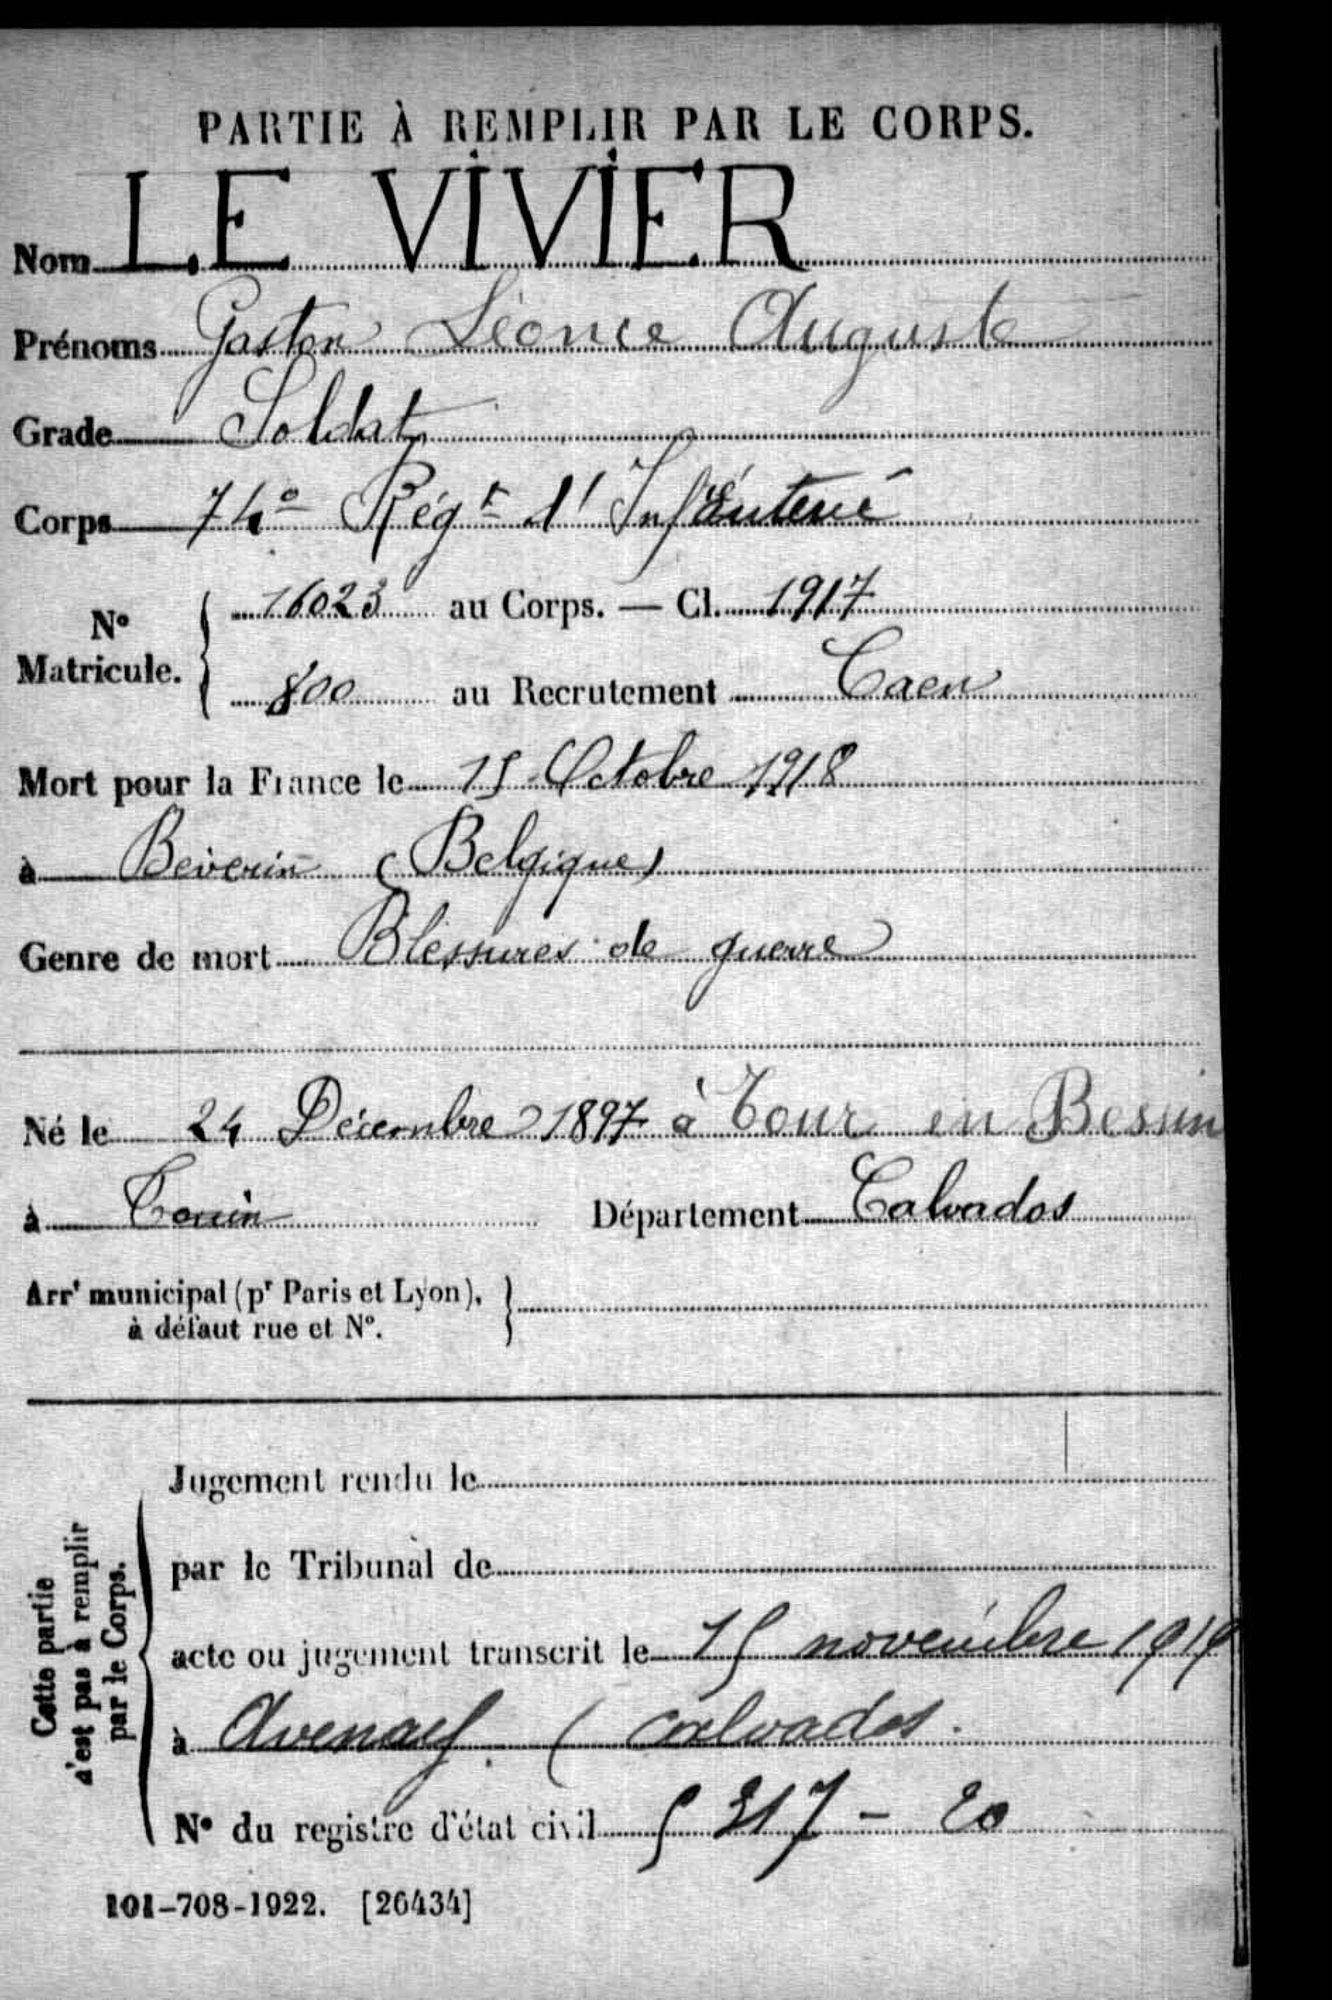 PARTIE À REMPLIR PAR LE CORPS.
Nom LE VIVIER
Prénoms Gaston Léonce Auguste
Grade Soldat
Corps 74e Régt d'Infanterie
N° Matricule. 16023 au Corps. — Cl. 1917
800 au Recrutement Caen
Mort pour la France le 15 Octobre 1918
à Beverin (Belgique)
Genre de mort Blessures de guerre
Né le 24 Décembre 1897 à Tour en Bessin
à Département Calvados
Arrt municipal (pr Paris et Lyon),
à défaut rue et N°.
Cette partie
n'est pas à remplir
par le Corps.
Jugement rendu le
par le Tribunal de
acte ou jugement transcrit le 15 novembre 1919
à Avenay (Calvados.
N° du registre d'état civil 317 - 20
101-708-1922. [26434]